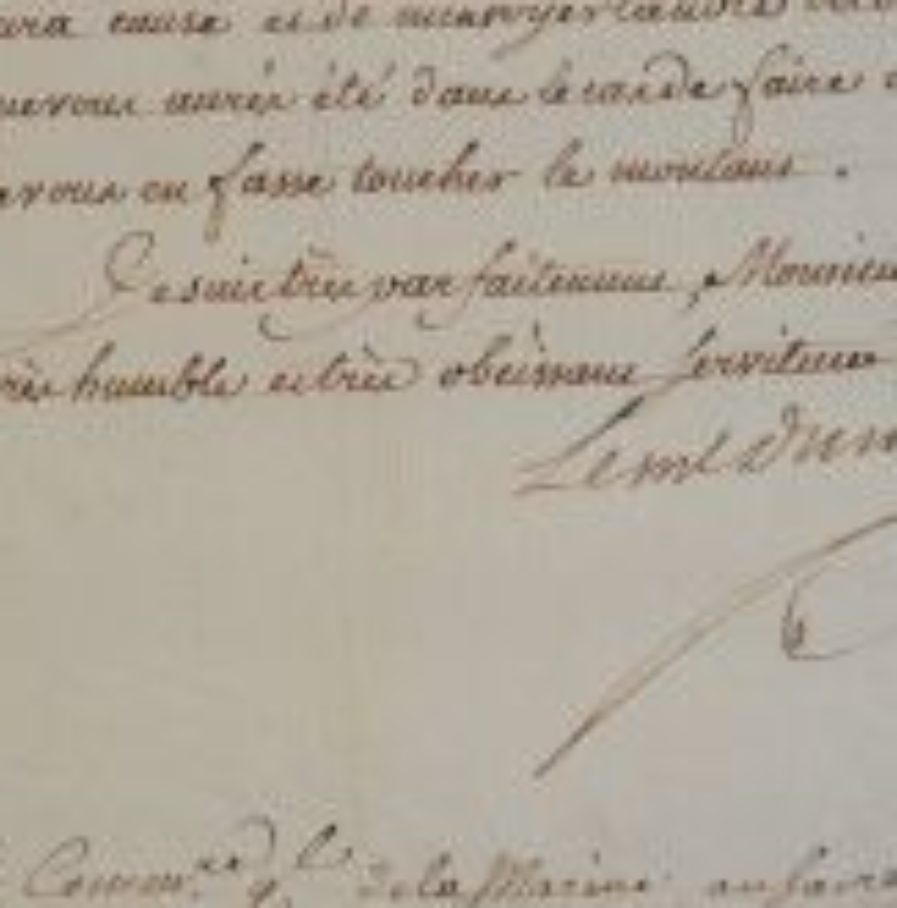 cause et de m'envoyer
que vous auriez été dans le cas de faire
vous en fasse toucher le montant.
Je suis très parfaitement, Monsieur
très humble et très obéissant serviteur
Le ml
Commre gl de la Marine au havre